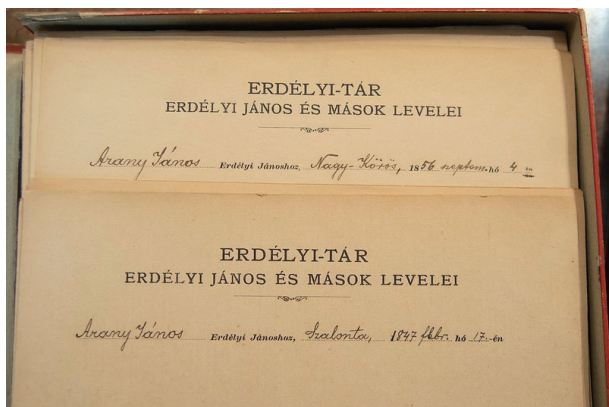 ERDÉLYI-TÁR
ERDÉLYI JÁNOS ÉS MÁSOK LEVELEI
Arany János Erdélyi Jánoshoz, Nagy-Kőrös, 1856 septem. hó 4 én
ERDÉLYI-TÁR
ERDÉLYI JÁNOS ÉS MÁSOK LEVELEI
Arany János Erdélyi Jánoshoz, Szalonta, 1847 febr. hó 17.-én